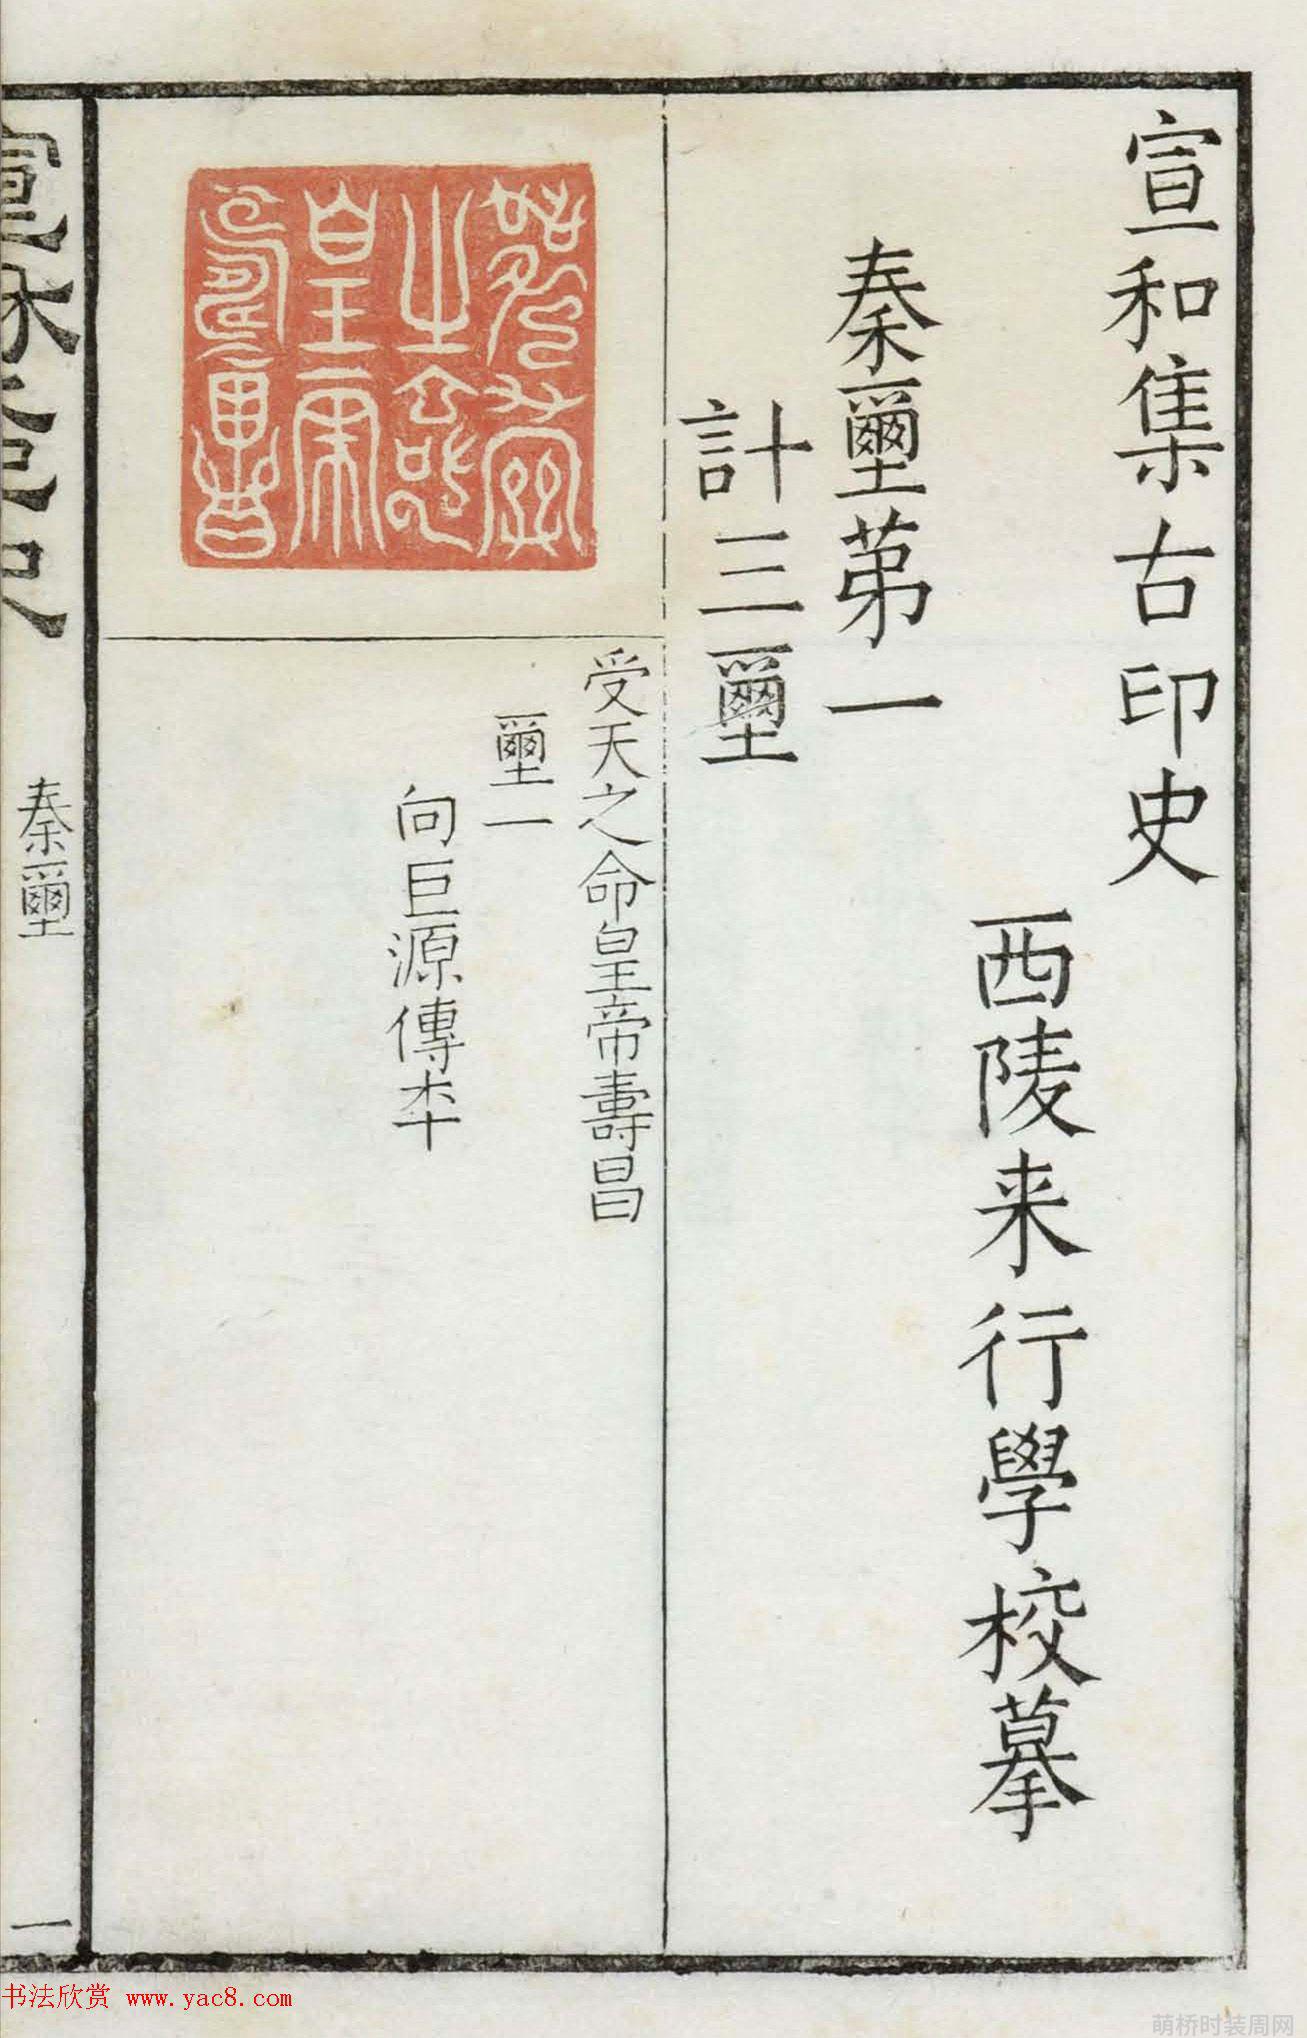 宣和集古印史
西陵来行學校摹
秦璽苐一
計三璽
受天之命皇帝壽昌
璽一
向巨源傳夲
秦璽
一
书法欣赏 www.yac8.com
萌桥时装周网